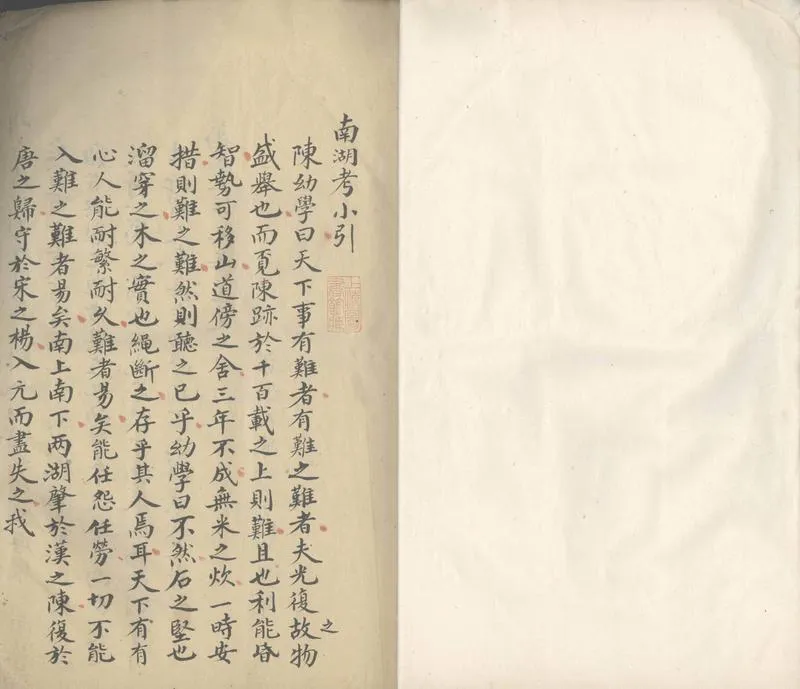 南湖考小引
陳幼學曰天下事有難者有難之難者夫光復故物之
盛舉也而覓陳跡於千百載之上則難且也利能昏
智勢可移山道傍之舍三年不成無米之炊一時安
措則難之難然則聽之已乎幼學曰不然石之堅也
溜穿之木之實也繩斷之存乎其人焉耳天下有有
心人能耐繁耐久難者易矣能任怨任勞一切不能
入難之難者易矣南上南下兩湖肇於漢之陳復於
唐之歸守於宋之楊入元而盡失之我